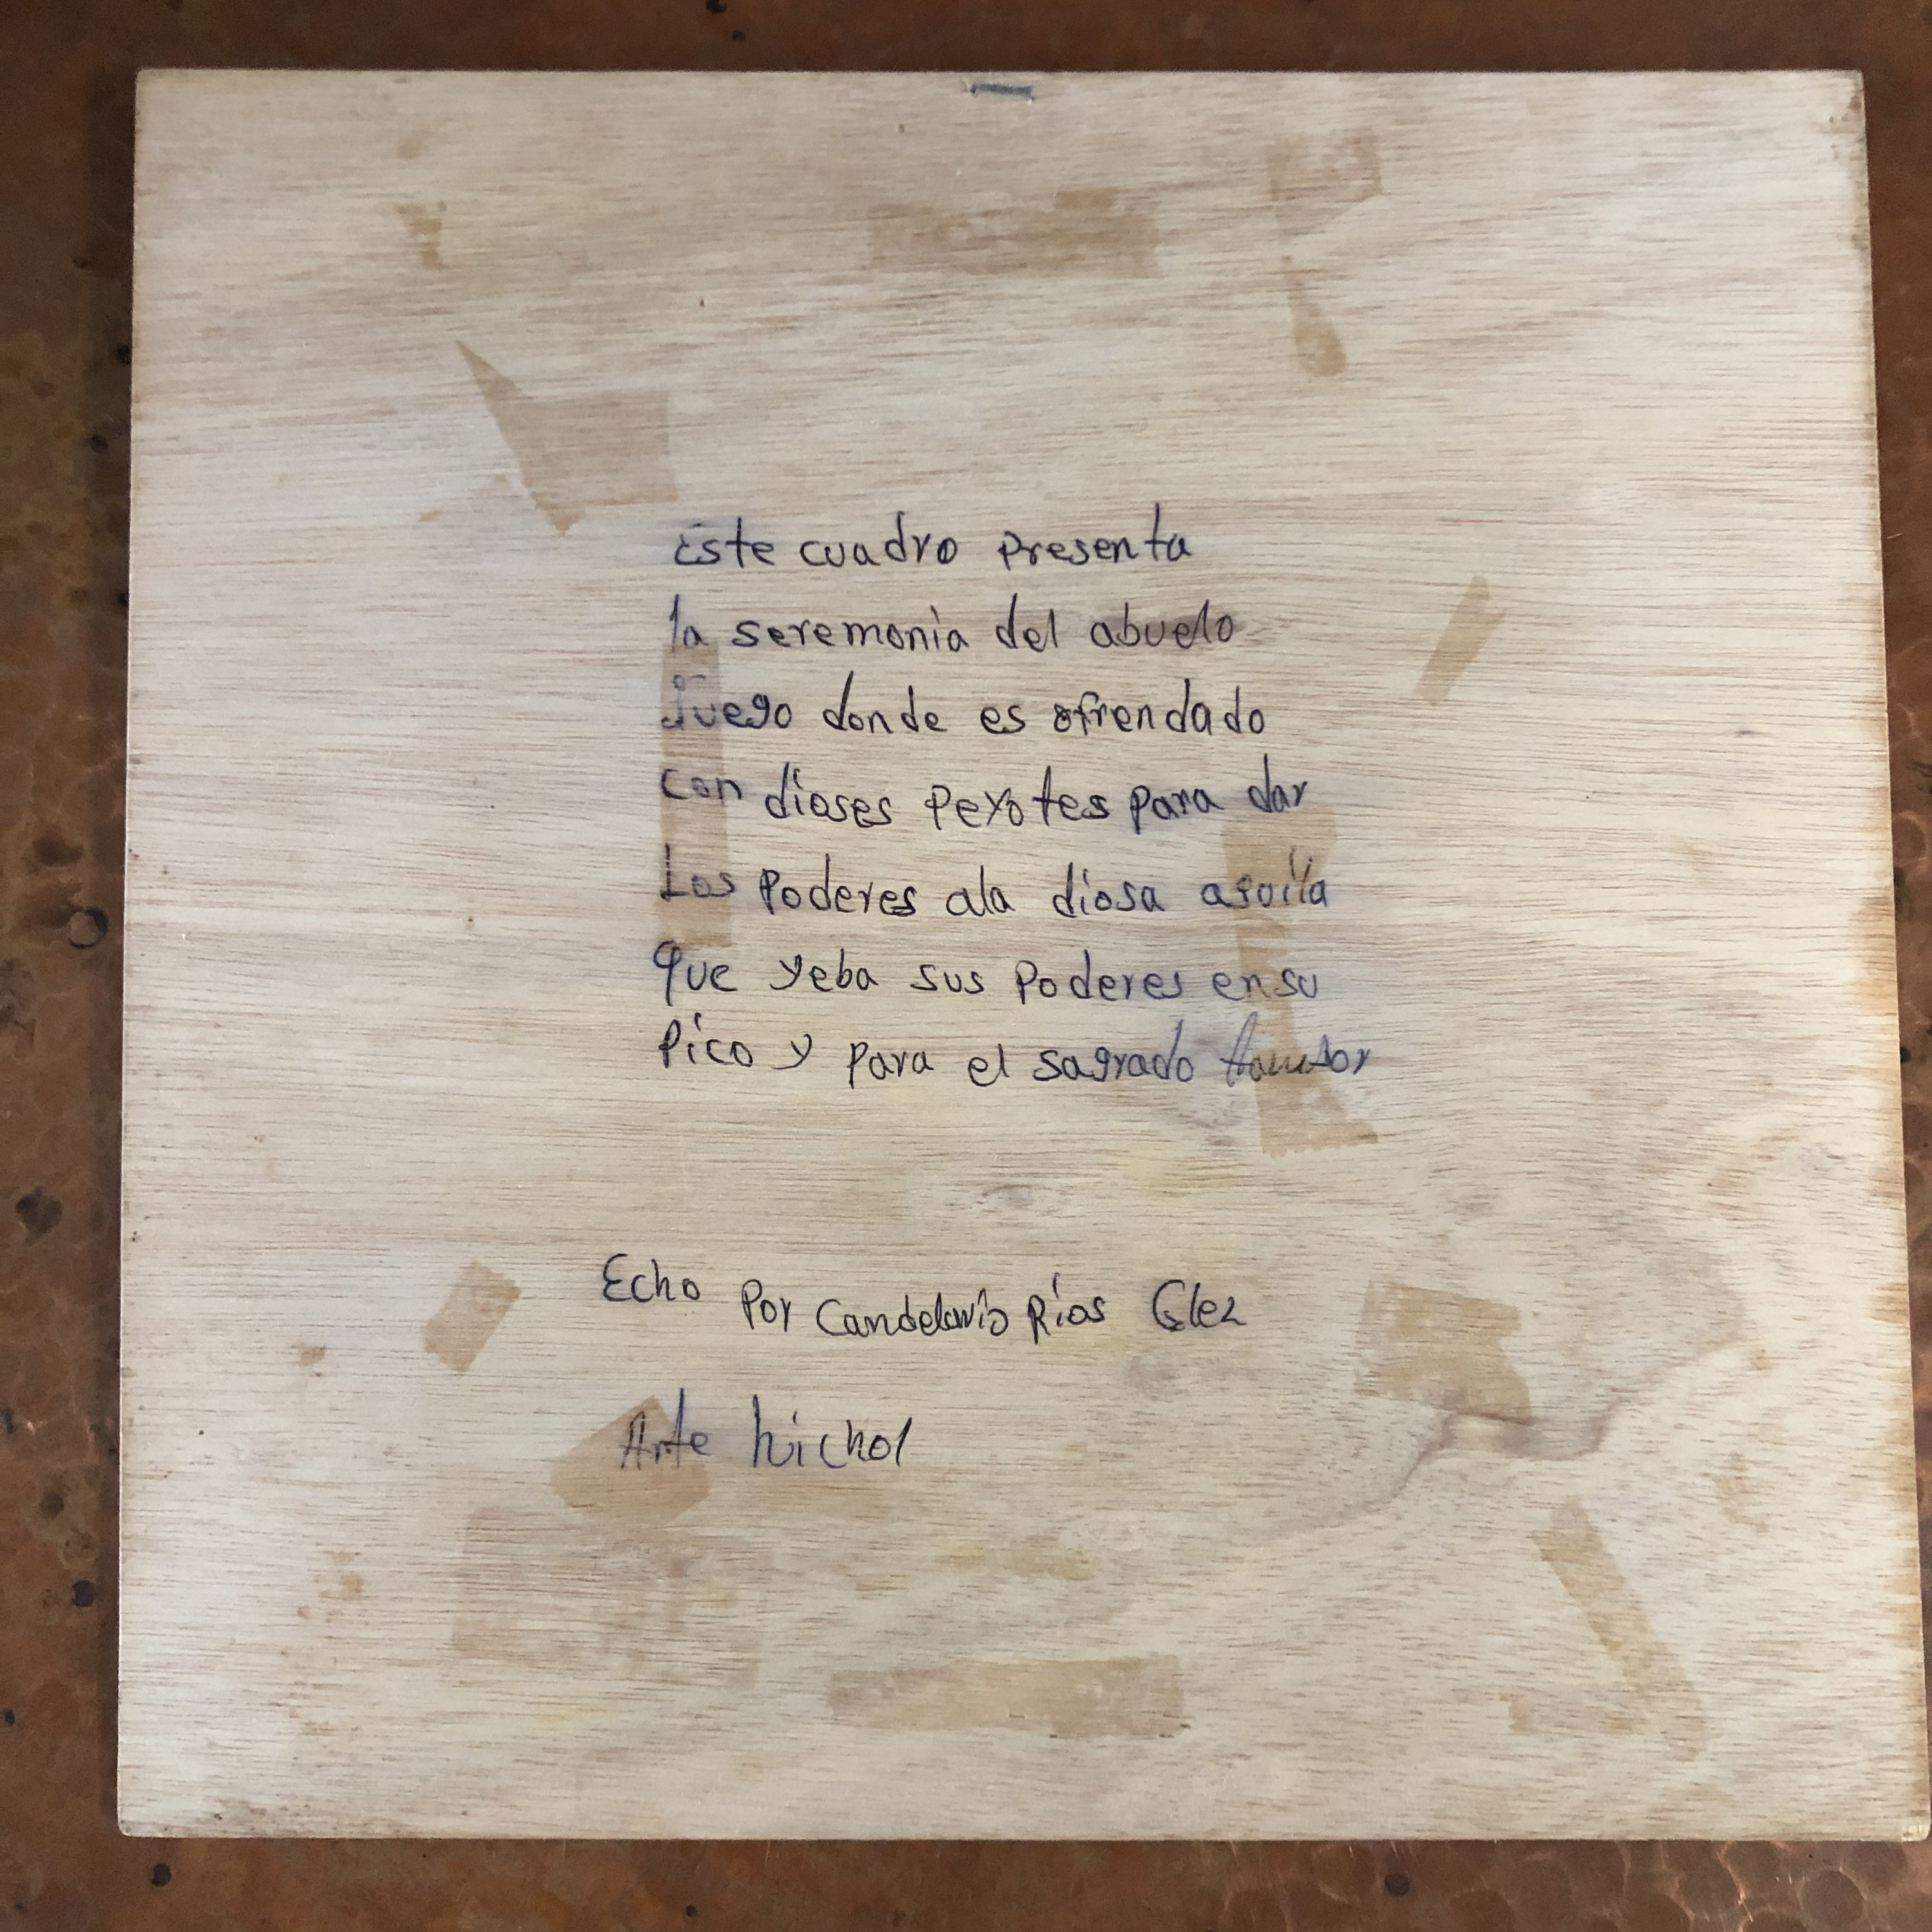 Este cuadro presenta
la seremonia del abuelo
fuego donde es ofrendado
con dioses peyotes para dar
Los poderes ala diosa aguila
que yeba sus poderes ensu
pico y para el sagrado
Echo por Candelario Ríos Glez
Arte huichol